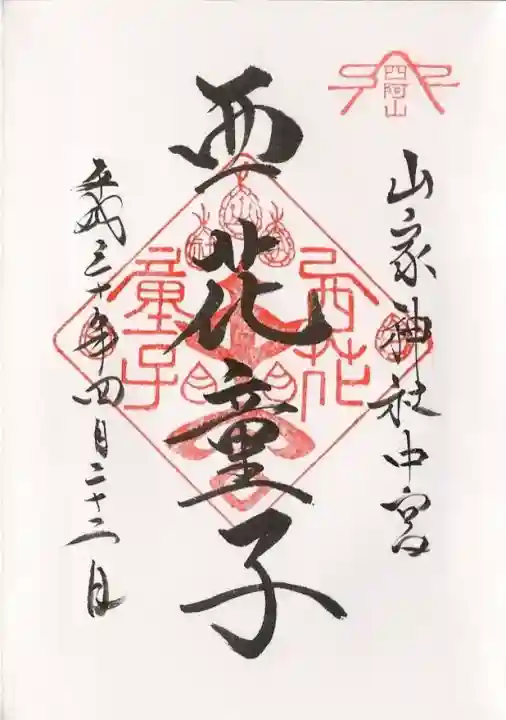 四阿山
山家神社中宮
西花童子
西花
童子
平成三十年四月二十二日